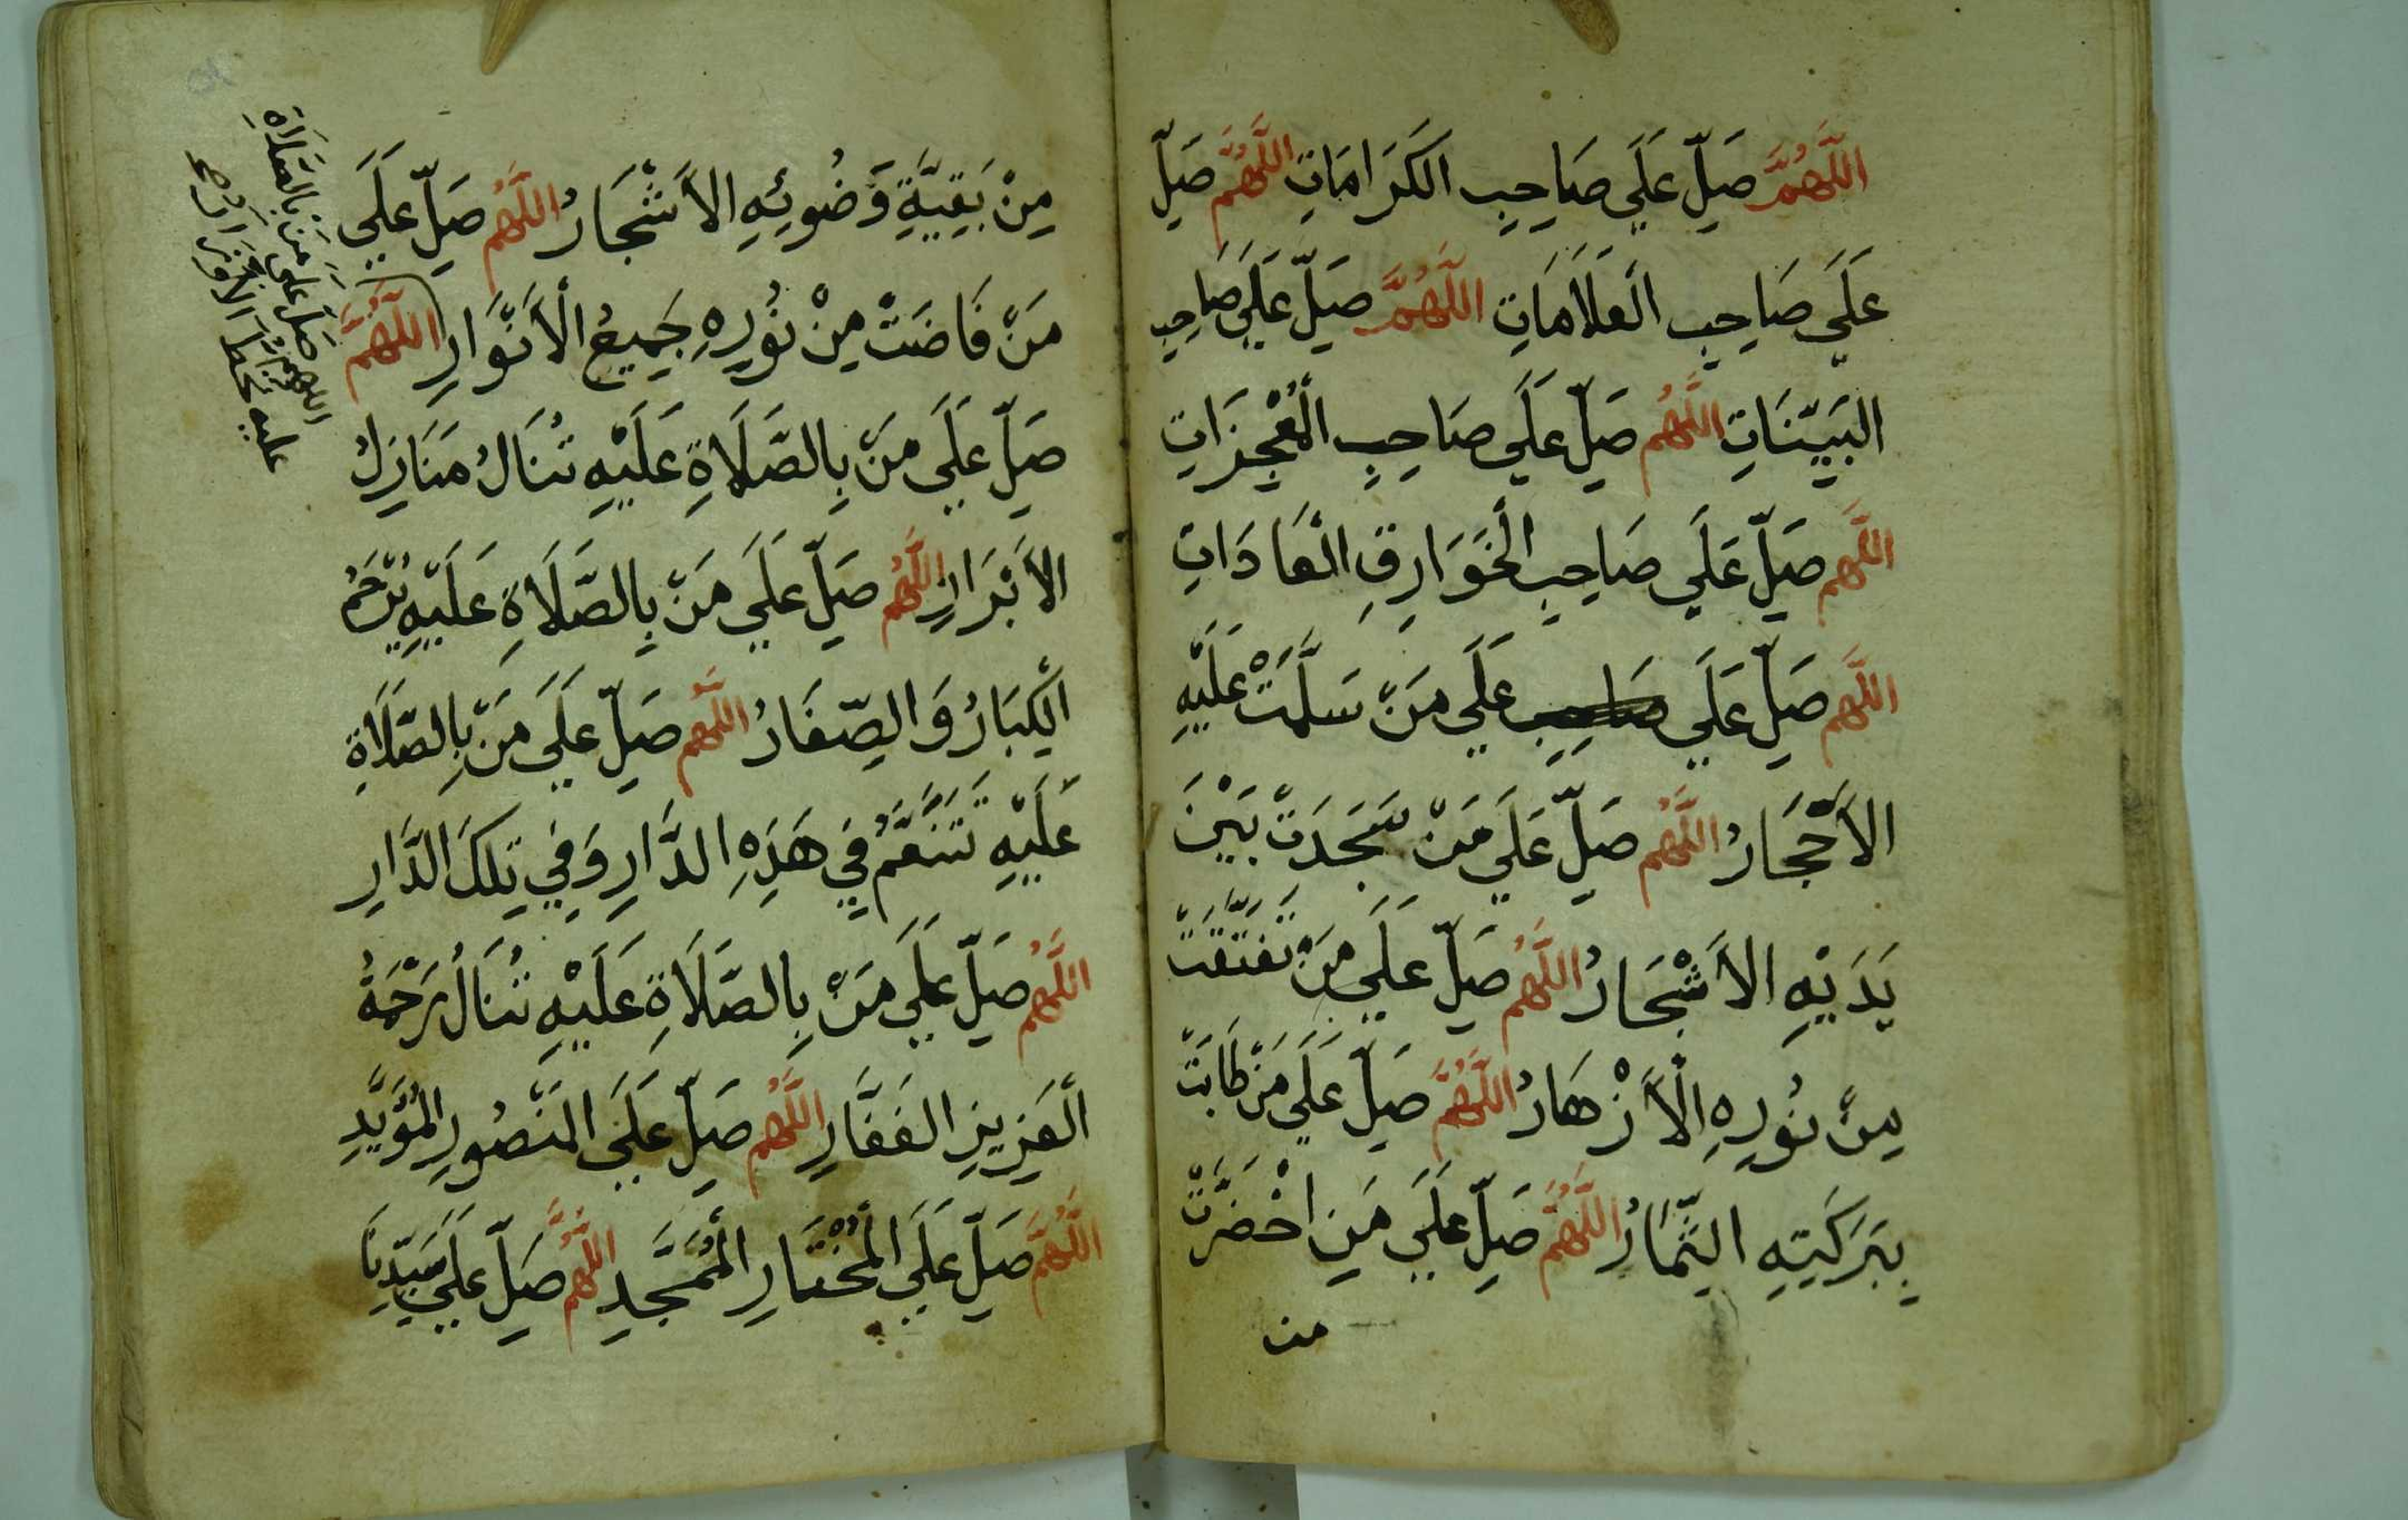 اللَّهُمَّ صَلِّ عَلَي صَاحِبِ الكَرَامَاتِ اللَّهُمَّ صَلِّ
عَلَي صَاحِبِ الْعَلَامَاتِ اللَّهُمَّ صَلِّ عَلَي صَاحِبِ
البَيِّنَاتِ اللَّهُم صَلِّ عَلَي صَاحِبِ الْمُعْجِزَاتِ
اللَّهُم صَلِّ عَلَي صَاحِبِ الْخَوَارِقِ الْعَادَاتِ
اللَّهُم صَلِّ عَلَي صَاحِبِ عَلَي مَنْ سَلَّمَتْ عَلَيْهِ
الأَحْجَارُ اللَّهُم صَلِّ عَلَي مَنْ سَجَدَتْ بَيْنَ
يَدَيْهِ الأَشْجَارُ اللَّهُم صَلِّ عَلَي مَنْ تَفَتَّقَتْ
مِنْ نُورِهِ الْأَزْهَارُ اللَّهُمَّ صَلِّ عَلَي مَنْ طَابَتْ
بِبَرَكَتِهِ الثِّمَارُ اللَّهُمَّ صَلِّ عَلَي مَنِ اخْضَرَّتْ
من
مِنْ بَقِيَّةِ وَضُوئِهِ الأَشْجَارُ اللَّهُم صَلِّ عَلَي
مَنْ فَاضَتْ مِنْ نُورِهِ جَمِيعُ الْأَنْوَارِ اللَّهُمَّ
صَلِّ عَلَي مَنْ بِالصَّلَاةِ عَلَيْهِ تُنَالُ مَنَازِلُ
الأَبْرَارِ اللَّهُم صَلِّ عَلَي مَنْ بِالصَّلَاةِ عَلَيْهِ يُرْحَمُ
الْكِبَارُ وَالصِّغَارُ اللَّهُم صَلِّ عَلَي مَنْ بِالصَّلَاةِ
عَلَيْهِ تَتَنَعَّمُ فِي هَذِهِ الدَّارِ وَفِي تِلكَ الدَّارِ
اللَّهُم صَلِّ عَلَي مَنْ بِالصَّلَاةِ عَلَيْهِ تُنَالُ رَحْمَةُ
الْعَزِيزِ الغَفَّارِ اللَّهُم صَلِّ عَلَي المَنْصُورِ المُؤَيَّدِ
اللَّهُمَّ صَلِّ عَلَي الْمُخْتَارِ الْمُمَجَّدِ اللَّهُمَّ صَلِّ عَلَي سَيِّدِنَا
اللهم صَلِّ عَلي مَنْ بِالصَّلَاةِ
عليه تحط الأوزار صح